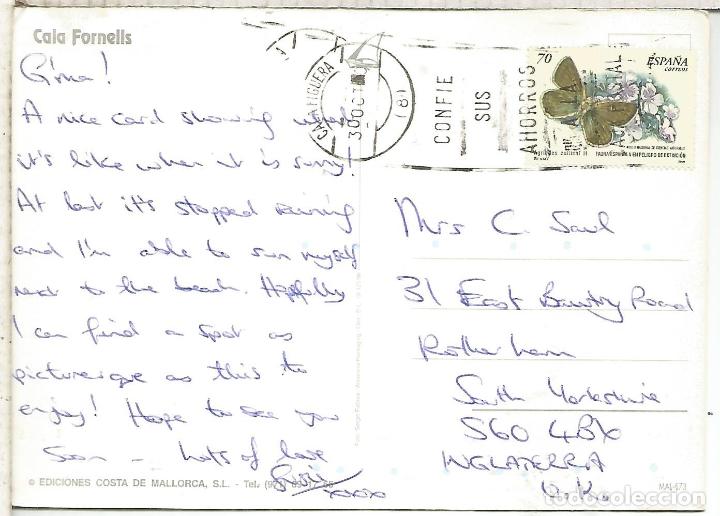 Cala Fornells
G'ma!
A nice card showing what
it's like when it is sunny!
At last it's stopped raining
and I'm able to sun myself
next to the beach. Hopefully
I can find a spot as
picturesque as this to
enjoy! Hope to see you
soon - Lots of love
xxxx
© EDICIONES COSTA DE MALLORCA, S.L. - Tel.
CALA FIGUERA
30 OCT
(8)
CONFIE
SUS
AHORROS
70
ESPAÑA
correos
FAUNA ESPAÑOLA EN PELIGRO DE EXTINCION
Mrs C. Saul
31 East Bawtry Road
Rotherham
South Yorkshire
S60 4BX
INGLATERRA
U.K.
MAL-673